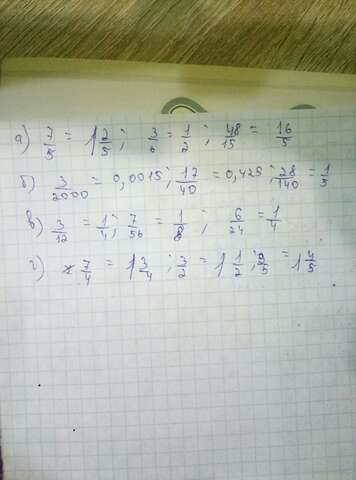 а) 7/5 = 1 2/5; 3/6 = 1/2; 48/15 = 16/5
б) 3/2000 = 0,0015; 17/40 = 0,425; 28/140 = 1/5
в) 3/12 = 1/4; 7/56 = 1/8; 6/24 = 1/4
г) 7/4 = 1 3/4; 3/2 = 1 1/2; 9/5 = 1 4/5